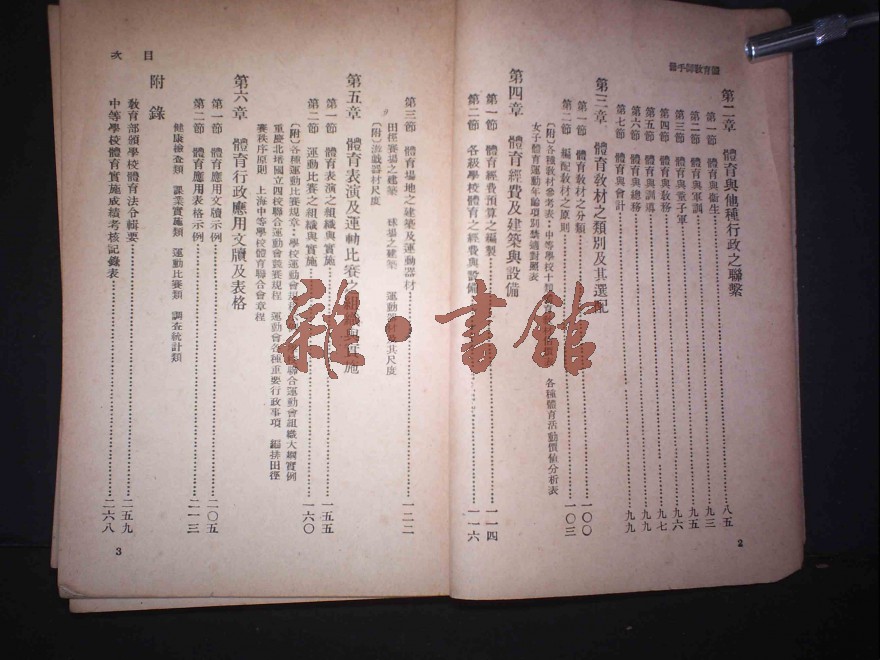 體育教師手冊
第二章　體育與他種行政之聯繫……八五
第一節　體育與衞生……九三
第二節　體育與軍訓……九五
第三節　體育與童子軍……九六
第四節　體育與教務……九七
第五節　體育與訓導……九九
第六節　體育與總務……九九
第七節　體育與會計
第三章　體育教材之類別及其選配
第一節　體育教材之分類……一〇〇
第二節　編配教材之原則……一〇三
〔附〕各種教材參考表：中等學校十 各種體育活動價値分析表
女子體育運動年齡項別禁適對照表
第四章　體育經費及建築與設備
第一節　體育經費預算之編製……一一四
第二節　各級學校體育之經費與設備……一一六
2
目次
第三節　體育場地之建築及運動器材……一二二
田徑賽場之建築　球場之建築　運動 其尺度
〔附〕游戲器材尺度
第五章　體育表演及運動比賽之 實施
第一節　體育表演之組織與實施……一五五
第二節　運動比賽之組織與實施……一六〇
〔附〕各種運動比賽規章：學校運動會規 聯合運動會組織大綱實例
重慶北碚國立四校聯合運動會競賽規程　運動會各種重要行政事項　編排田徑
賽秩序原則　上海中等學校體育聯合會章程
第六章　體育行政應用文牘及表格
第一節　體育應用文牘示例……二〇五
第二節　體育應用表格示例……二一三
健康檢查類　課業實施類　運動比賽類　調查統計類
附錄
教育部頒學校體育法令輯要……二五九
中等學校體育實施成績考核記錄表……二六八
3
雜·書館